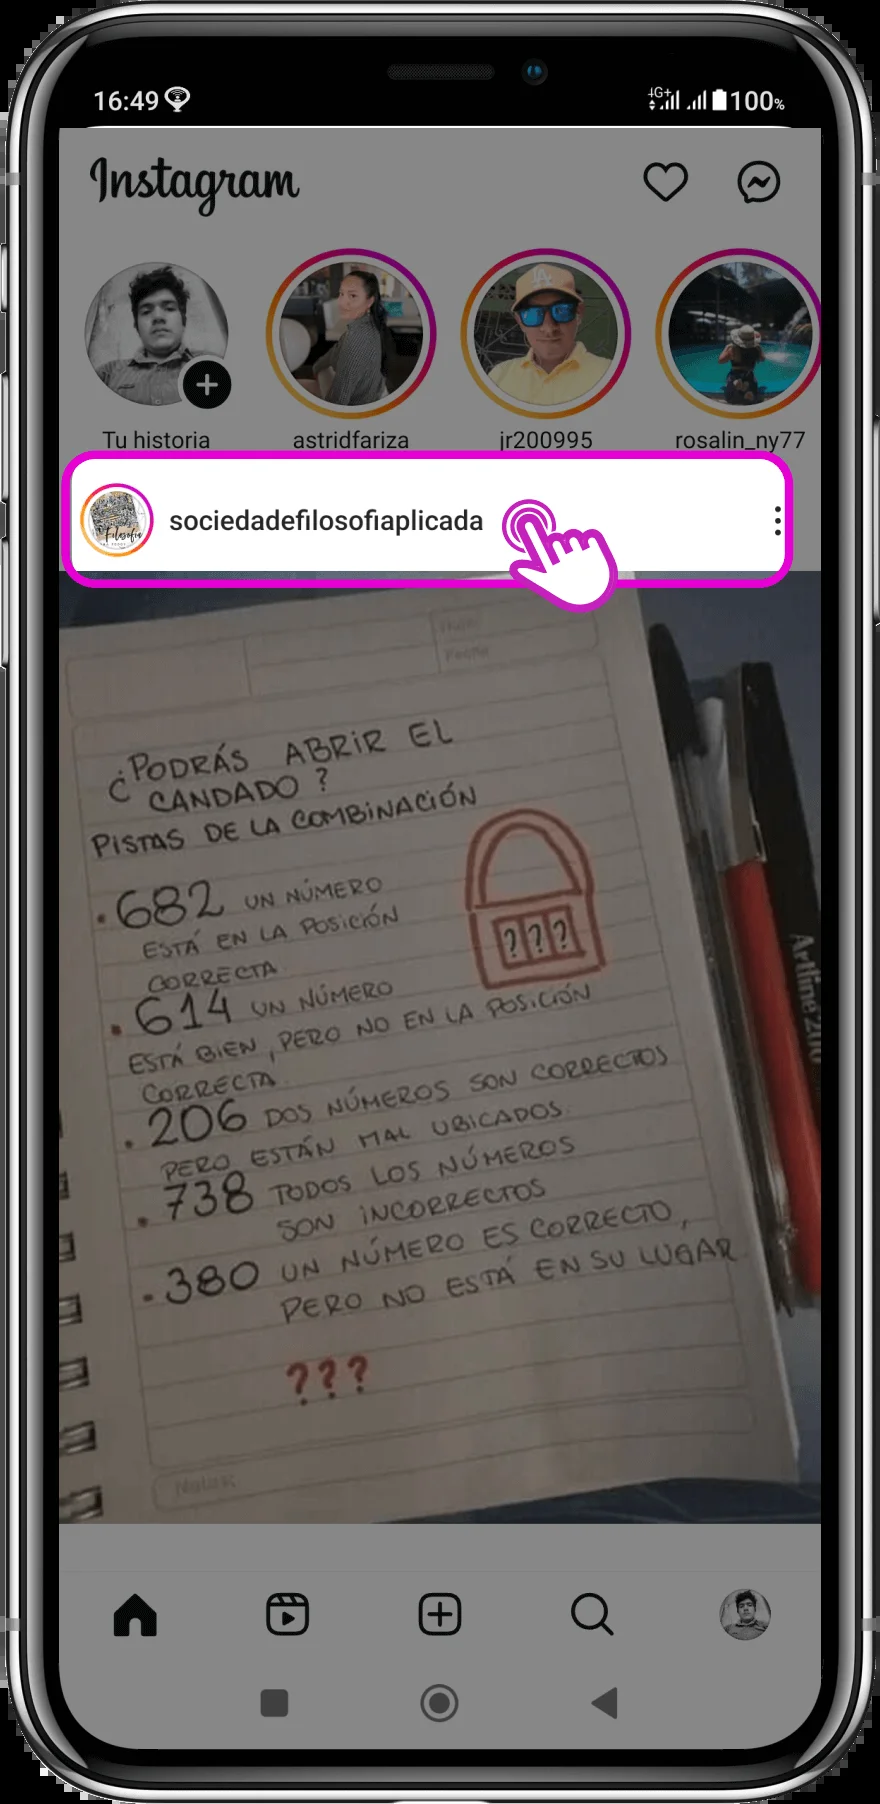 16:49
4G+
100%
Instagram
Tu historia
astridfariza
jr200995
rosalin_ny77
sociedadefilosofiaplicada
Filosofía
Fecha
¿PODRÁS ABRIR EL
CANDADO?
PISTAS DE LA COMBINACIÓN
???
.682 UN NÚMERO
ESTÁ EN LA POSICIÓN
CORRECTA
.614 UN NÚMERO
ESTÁ BIEN, PERO NO EN LA POSICIÓN
CORRECTA
.206 DOS NÚMEROS SON CORRECTOS
PERO ESTÁN MAL UBICADOS.
.738 TODOS LOS NÚMEROS
SON INCORRECTOS
.380 UN NÚMERO ES CORRECTO,
PERO NO ESTÁ EN SU LUGAR
???
Artline 200